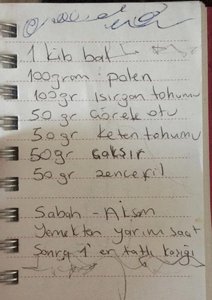 1 kib bal
100gram: polen
100gr ısırgan tohumu
50 gr Çörek otu
50 gr keten tohumu
50gr çakşır
50 gr zencefil
Sabah - Akşam
Yemekten yarım saat
Sonra 1'er tatlı kaşığı